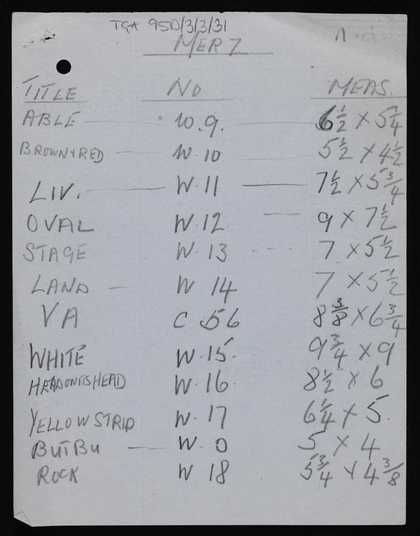 TGA 950/3/3/31
MERZ
TITLE NO MEAS.
ABLE W.9. 6½ × 5¼
BROWN+RED W.10 5½ × 4½
LIV. W.11 7½ × 5¾
OVAL W.12 9 × 7½
STAGE W.13 7 × 5½
LAND W 14 7 × 5½
VA C.56 8⅜ × 6¾
WHITE W.15. 9¾ × 9
W.16. 8½ × 6
YELLOW STRIP W.17 6¼ × 5.
BUTBU W.0 5 × 4
ROCK W 18 5¾ × 4⅜